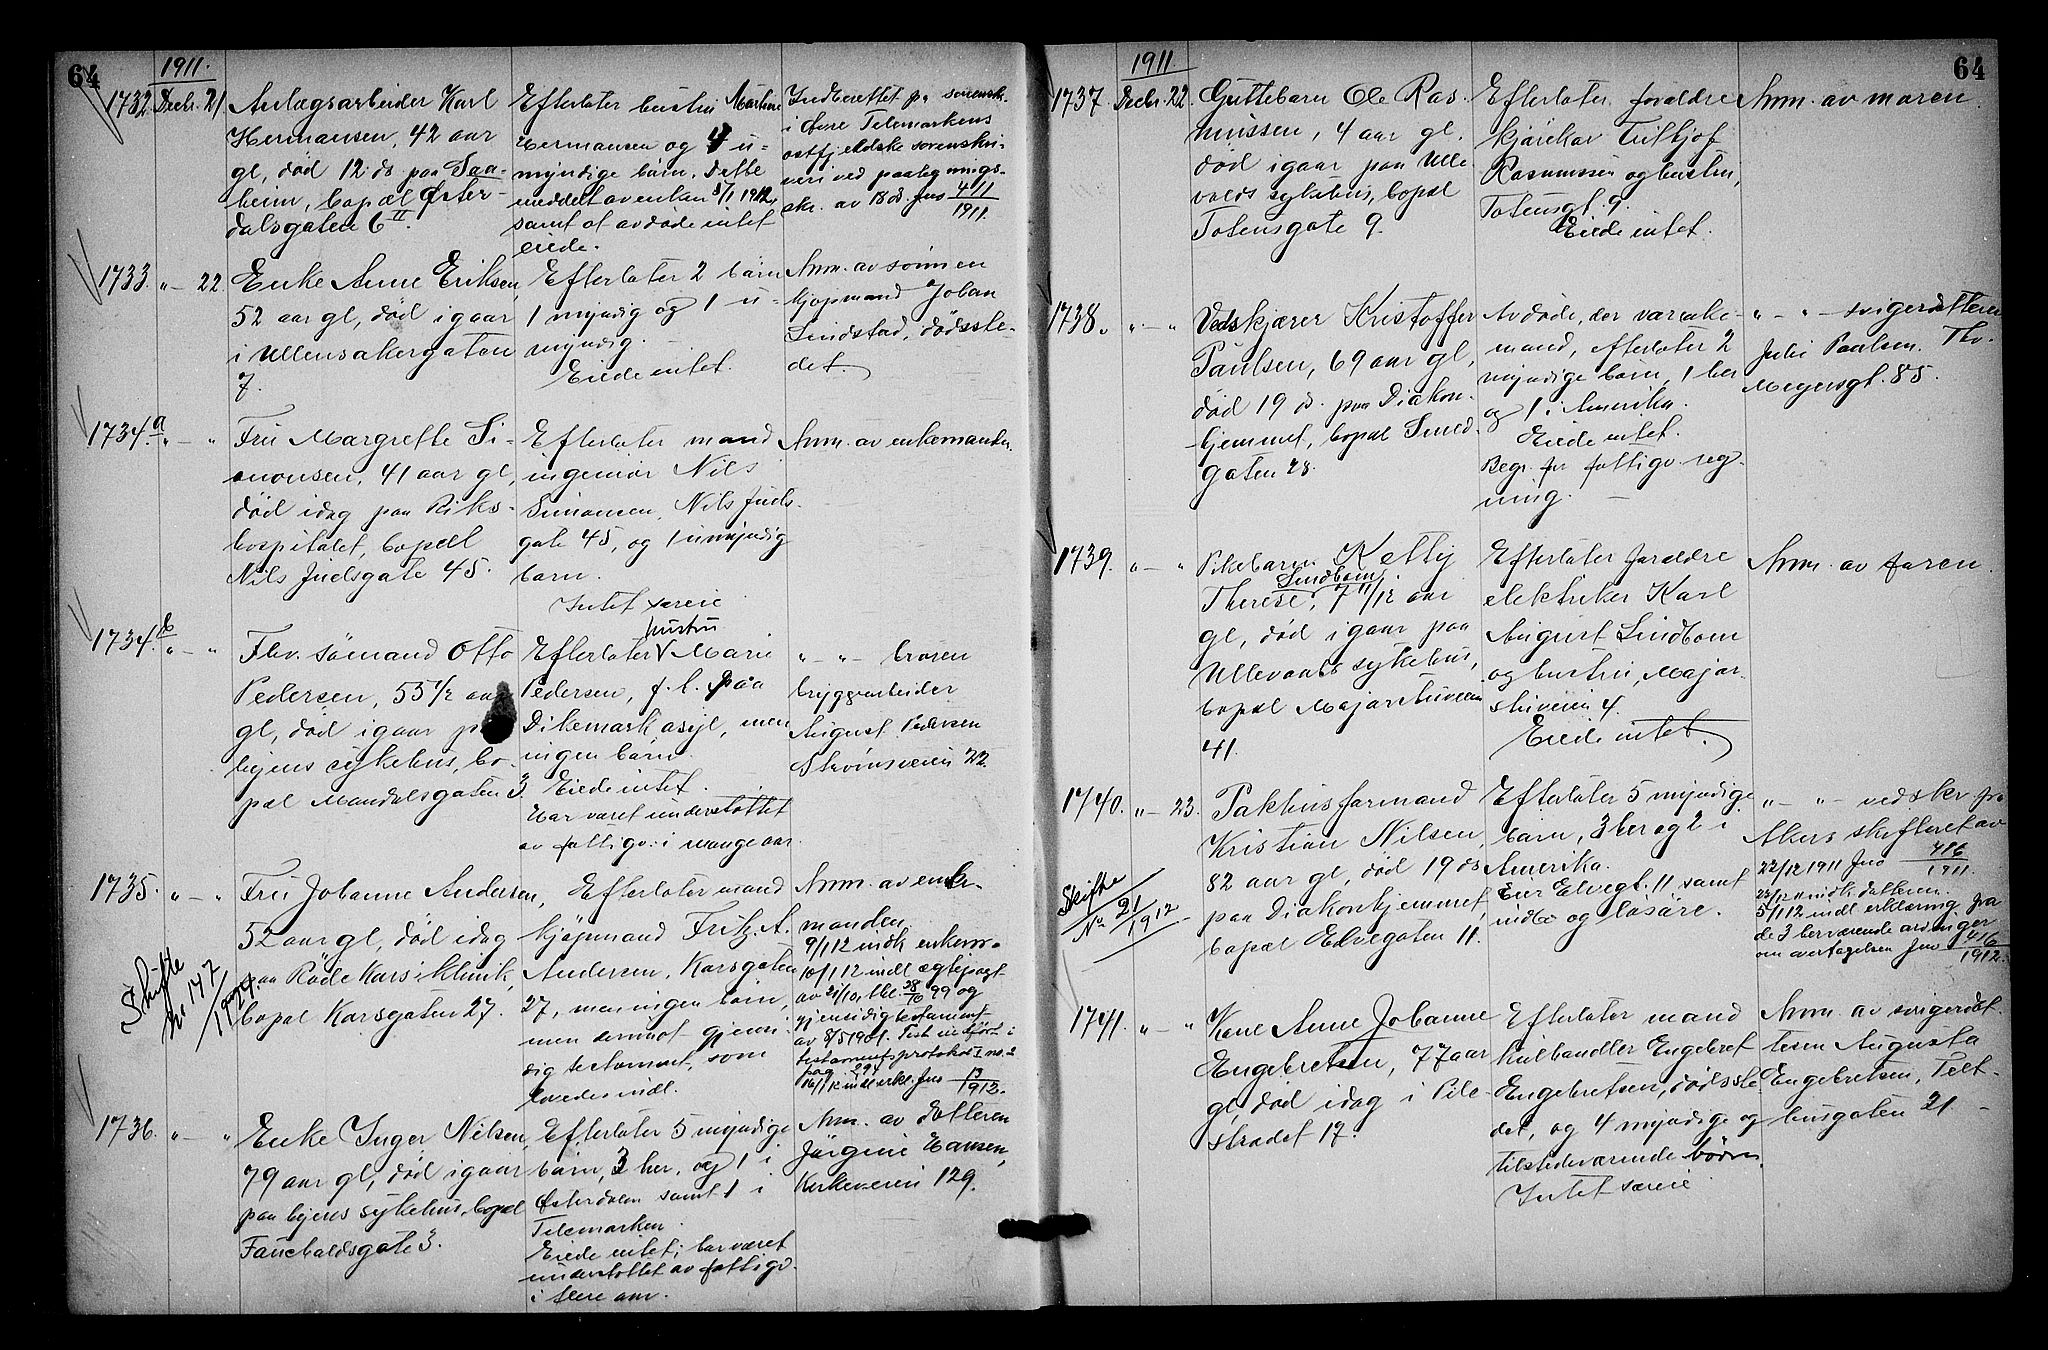 64
1911.
1732 Decbr. 21
Anlægsarbeider Karl
Hermansen, 42 aar
gl, død 12. ds paa Saa-
heim, bopæl Øster-
dalsgaten 6 II.
Efterlater hustru Martine
Hermansen og 4 u-
myndige børn. Dette
meddelt av enken 8/1 1912,
samt at avdøde intet
eiede.
Indberettet fra sorensk.
i Øvre Telemarkens
østfjeldske sorenskri-
veri ved paategnings-
skr. av 18 ds. Jno 411/1911.
1733. „ — 22.
Enke Anne Eriksen,
52 aar gl, død igaar
i Ullensakergaten
7.
Efterlater 2 børn
1 myndig og 1 u-
myndig. —
Eiede intet.
Anm. av sønnen
kjøpmand Johan
Lindstad, dødsste-
det.
1734 a „ — „
Fru Margrethe Si-
monsen, 41 aar gl,
død idag paa Riks-
hospitalet, bopæl
Nils Juelsgate 45.
Efterlater mand
ingeniør Nils
Simonsen, Nils Juels-
gate 45, og 1 umyndig
barn.
Intet særeie.
Anm. av enkemanden.
1734. b „ — „
Fhv. sømand Otto
Pedersen, 55 1/2 aar
gl, død igaar paa
byens sykehus, bo-
pæl Mandalsgaten 3.
hustru
Efterlater V Marie
Pedersen, f. t. paa
Dikemark asyl, men
ingen børn.
Eiede intet.
Har været understøttet
av fattigv. i mange aar.
„ — „ — broren
bryggearbeider
August Pedersen
Strømsveien 22.
1735. „ — „
Skifte
No 147/1912.
Fru Johanne Andersen,
52 aar gl, død idag
paa Røde Kors' klinik,
bopæl Korsgaten 27.
Efterlater mand
kjøpmand Fritz A.
Andersen, Korsgaten
27, men ingen børn,
men derimot gjensi-
dig testament, som
lovedes indl.
Anm. av enke-
manden.
9/1 12 indk. enkem.
10/1 12 indl ægtepagt
av 21/10, tbl. 28/10 99 og
gjensidig testament
av 8/5 1901. Test indført i
testamentsprotokol I no. 2
pag. 294
16/1 12 indl erkl. Jno 13/1912.
1736. „ — „
Enke Inger Nilsen,
79 aar gl, død igaar
paa byens sykehus, bopæl
Fauchaldsgate 3.
Efterlater 5 myndige
børn, 3 her, og 1 i
Østerdalen samt 1 i
Telemarken.
Eiede intet; har været
understøttet av fattigv.
i flere aar.
Anm. av datteren
Jørgine Hansen,
Kirkeveien 129.
64
1911
1737 Decbr. 22.
Guttebarn Ole Ras-
mussen, 4 aar gl.
død igaar paa Ulle-
volds sykehus, bopæl
Totensgate 9.
Efterlater forældre
kjørekar Tritjof
Rasmussen og hustru,
Totensgt. 9.
Eiede intet.
Anm. av moren.
1738 „ „ — „
Vedskjærer Kristoffer
Paulsen, 69 aar gl,
død 19 ds. paa Diakon-
hjemmet, bopæl Smed-
gaten 28.
Avdøde, der var enke-
mand, efterlater 2
myndige børn, 1 her
og 1 i Amerika.
Eiede intet.
Begr. for fattigv. reg-
ning. —
„ — „ — svigerdatteren
Julie Paulsen. Thv.
Meyersgt. 85.
1739. „ — „
Pikebarn Ketty
Lindbom
Therese, 7 11/12 aar
gl, død igaar paa
Ullevaals sykehus,
bopæl Majorstuveien
41.
Efterlater forældre
elektriker Karl
August Lindbom
og hustru, Major-
stuveien 4.
Eiede intet.
Anm. av faren.
1740. „ — 23.
Skifte
No 21/1912
Pakhusformand
Kristian Nilsen,
82 aar gl, død 19 ds
paa Diakonhjemmet,
bopæl Elvegaten 11.
Efterlater 5 myndige
børn, 3 her og 2 i
Amerika.
Eier Elvegt. 11 samt
indbo og løsøre.
„ — „ — ved skr. fra
Akers skifteret av
22/12 1911 Jno 416/1911.
23/12 11 indk. datteren.
5/1 12 indl erklæring fra
de 3 herværende arvinger
om overtagelsen Jno 416/1912.
1741. „ — „
Kone Anne Johanne
Engebretsen, 77 aar
gl, død idag i Pile-
strædet 17.
Efterlater mand
kulhandler Engebret
Engebretsen, dødsste-
det, og 4 myndige og
tilstedeværende børn.
Intet særeie.
Anm. av svigerdat-
teren Augusta
Engebretsen, Telt-
husgaten 21. —